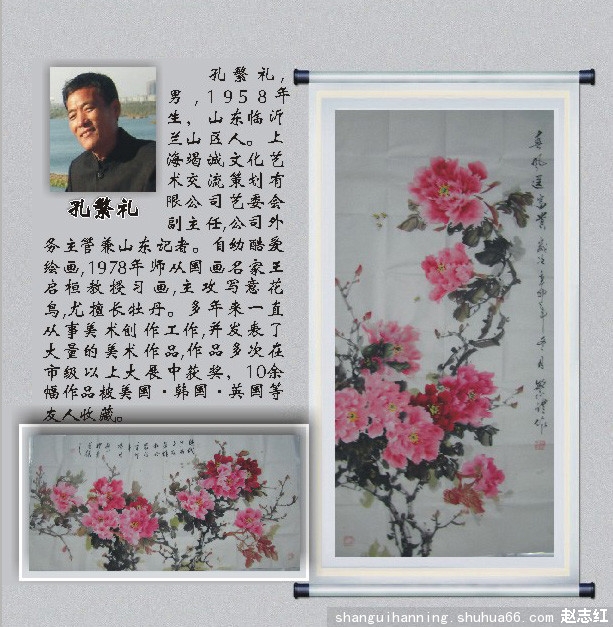 孔繁礼,
男,1958年
生，山东临沂
兰山区人。上
海竭诚文化艺
术交流策划有
限公司艺委会
副主任,公司外
孔繁礼
务主管兼山东记者。自幼酷爱
绘画,1978年师从国画名家王
启桓教授习画,主攻写意花
鸟,尤擅长牡丹。多年来一直
从事美术创作工作,并发表了
大量的美术作品,作品多次在
市级以上大展中获奖，10余
幅作品被美国·韩国·英国等
友人收藏。
春风送富贵
shanguihanning.shuhua66.com 赵志红